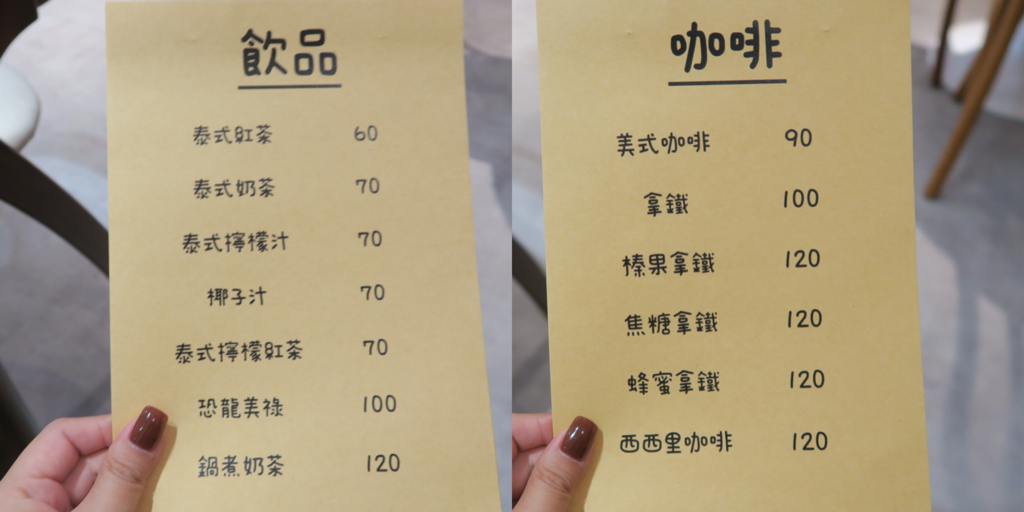 飲品
泰式紅茶 60
泰式奶茶 70
泰式檸檬汁 70
椰子汁 70
泰式檸檬紅茶 70
恐龍美祿 100
鍋煮奶茶 120
咖啡
美式咖啡 90
拿鐵 100
榛果拿鐵 120
焦糖拿鐵 120
蜂蜜拿鐵 120
西西里咖啡 120